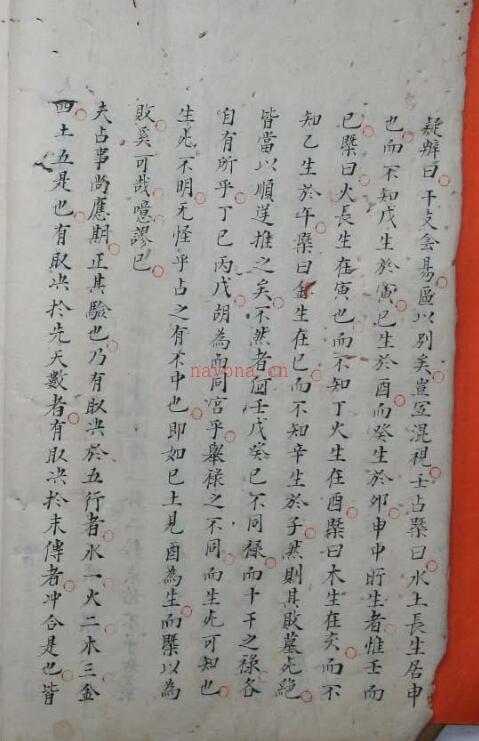 疑辨曰干支侌昜區以別矣豈宜混視壬占槩曰水土長生居申
也而不知戊生於寅己生於酉而癸生於夘申中所生者惟壬而
已槩曰火長生在寅也而不知丁火生在酉槩曰木生在亥而不
知乙生於午槩曰金生在巳而不知辛生於子然則其敗墓死絶
皆當以順逆推之矣不然者何壬戊癸己不同禄而十干之禄各
自有所乎丁己丙戊胡為而同宮乎舉禄之不同而生死可知也
生死不明无怪乎占之有不中也即如己土見酉為生而槩以為
敗奚可哉噫謬已
夫占事尚應期正其驗也乃有取决於五行者水一火二木三金
四土五是也有取决於先天數者有取决於末傳者冲合是也皆
nayona.cn